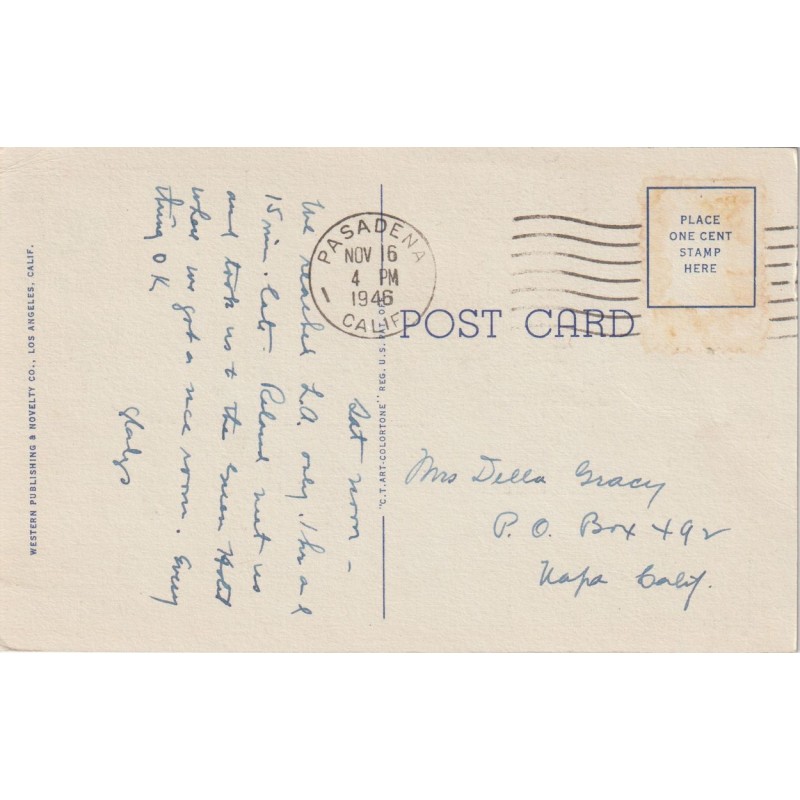 Sat noon -
We reached L.A. only 1 hr and
15 min. late. Roland met us
and took us to the Green Hotel
where we got a nice room. Every
thing OK
Gladys
PASADENA
NOV 16
4 PM
1946
CALIF.
PLACE
ONE CENT
STAMP
HERE
POST CARD
Mrs Della Gracy
P. O. Box 492
Napa Calif.
"C.T. ART-COLORTONE" REG. U.S. PAT. OFF.
WESTERN PUBLISHING & NOVELTY CO., LOS ANGELES, CALIF.